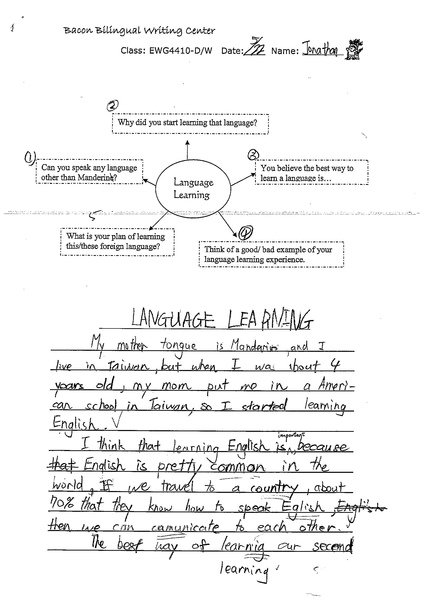 Bacon Bilingual Writing Center
Class: EWG4410-D/W Date: Name: Jonathan
②
Why did you start learning that language?
①
Can you speak any language
other than Manderink?
③
You believe the best way to
learn a language is…
Language
Learning
5
What is your plan of learning
this/these foreign language?
④
Think of a good/ bad example of your
language learning experience.
LANGUAGE LEARNING
My mother tongue is Mandarin, and I
live in Taiwan, but when I wa about 4
years old, my mom put me in a Ameri-
can school in Taiwan, so I started learning
English.
I think that learning English is important because
that English is pretty common in the
world. If we travel to a country, about
70% that they know how to speak Eglish, English
then we can camunicate to each other.
The best way of learnig our second
learning